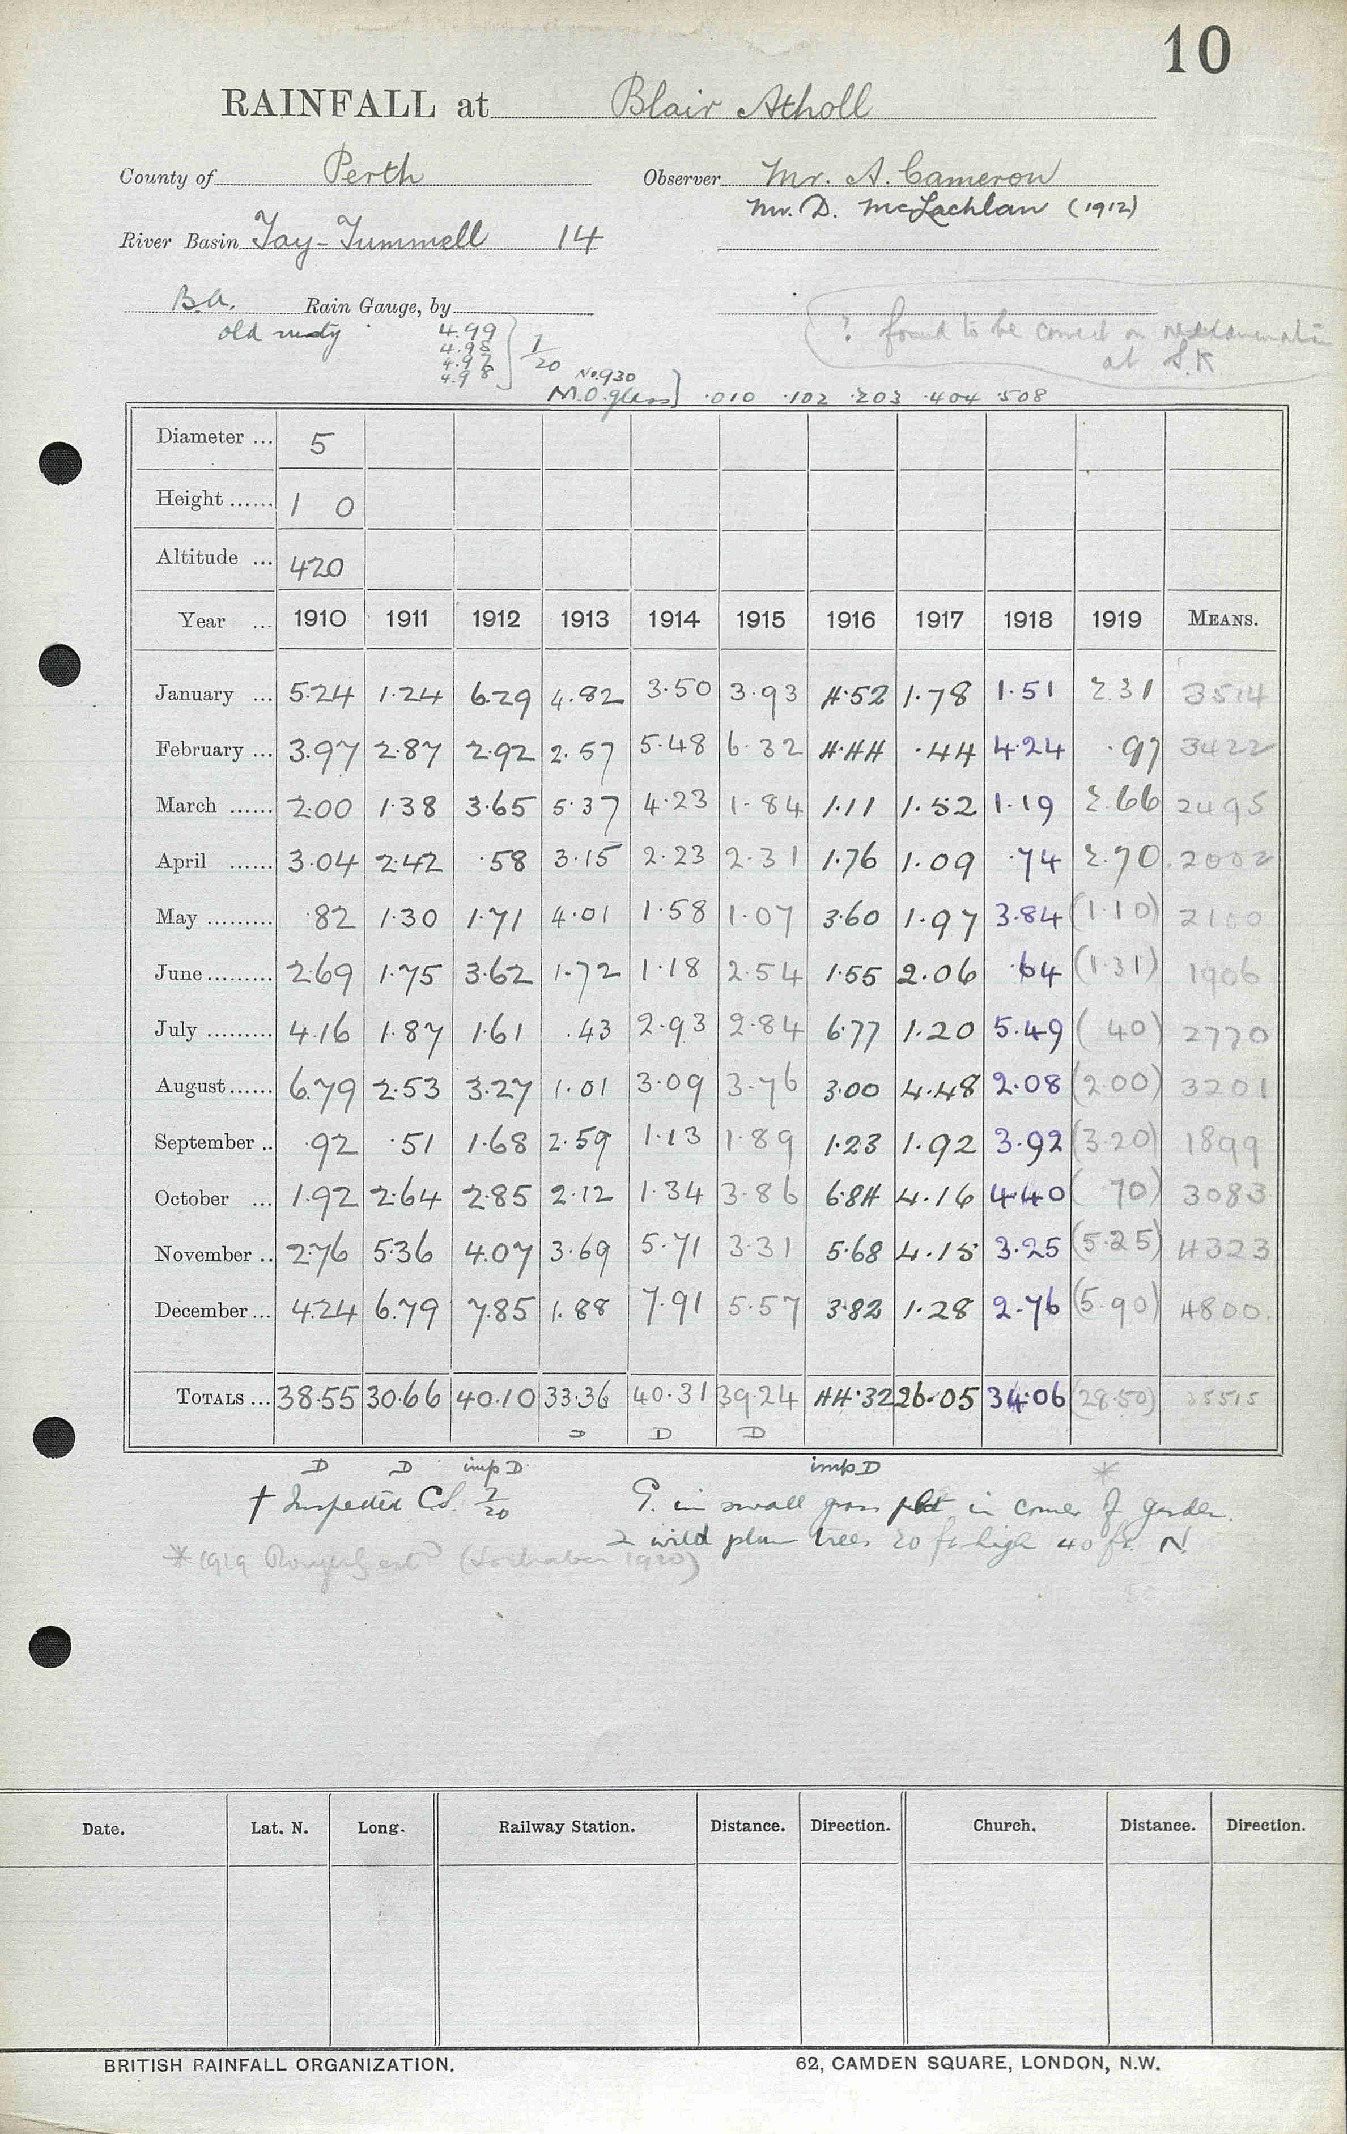 10
RAINFALL at Blair Atholl
County of Perth Observer Mr. A. Cameron
Mr. D. McLachlan (1912)
River Basin Tay-Tummell 14
B.A. Rain Gauge, by
old rusty 4.99
4.98 1/20
4.97
4.98 No. 930
M.O. glass] .010 .102 .203 .404 .508
? found to be correct on
at S.K
Diameter ... 5
Height ...... 1 0
Altitude ... 420
Year ... 1910 1911 1912 1913 1914 1915 1916 1917 1918 1919 MEANS.
January ... 5.24 1.24 6.29 4.82 3.50 3.93 4.52 1.78 1.51 2.31 3514
February ... 3.97 2.87 2.92 2.57 5.48 6.32 4.44 .44 4.24 .97 3422
March ...... 2.00 1.38 3.65 5.37 4.23 1.84 1.11 1.52 1.19 2.66 2495
April ...... 3.04 2.42 .58 3.15 2.23 2.31 1.76 1.09 .74 2.70 2002
May ......... .82 1.30 1.71 4.01 1.58 1.07 3.60 1.97 3.84 (1.10) 2100
June ......... 2.69 1.75 3.62 1.72 1.18 2.54 1.55 2.06 .64 (1.31) 1906
July ......... 4.16 1.87 1.61 .43 2.93 2.84 6.77 1.20 5.49 ( 40) 2770
August ...... 6.79 2.53 3.27 1.01 3.09 3.76 3.00 4.48 2.08 (2.00) 3201
September .. .92 .51 1.68 2.59 1.13 1.89 1.23 1.92 3.92 (3.20) 1899
October ... 1.92 2.64 2.85 2.12 1.34 3.86 6.84 4.16 4.40 ( 70) 3083
November .. 2.76 5.36 4.07 3.69 5.71 3.31 5.68 4.15 3.25 (5.25) 4323
December ... 4.24 6.79 7.85 1.88 7.91 5.57 3.82 1.28 2.76 (5.90) 4800
TOTALS ... 38.55 30.66 40.10 33.36 40.31 39.24 44.32 26.05 34.06 (28.50) 35515
D D D
D D imp D imp D *
† Inspected C.S. 7/20 G. in small grass plot in corner of garden.
2 wild plum trees 20 ft high 40 ft. N.
* 1919 Rough est (Lochaber 1920)
Date. Lat. N. Long. Railway Station. Distance. Direction. Church. Distance. Direction.
BRITISH RAINFALL ORGANIZATION. 62, CAMDEN SQUARE, LONDON, N.W.